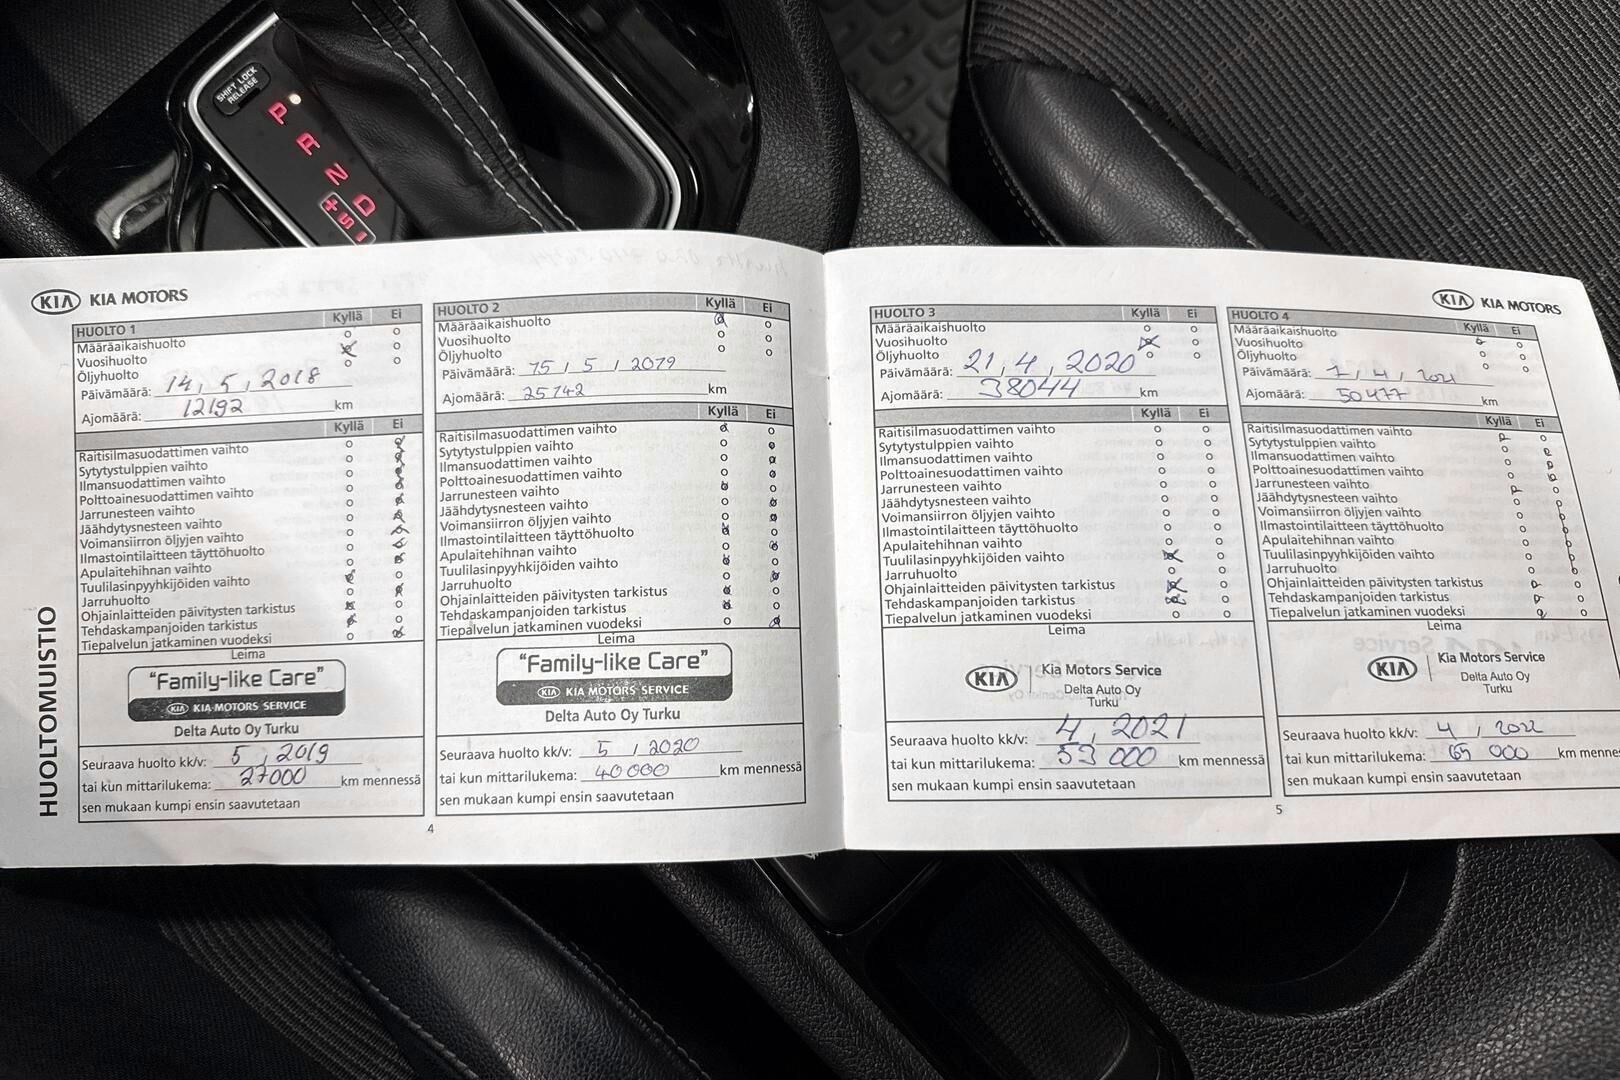 SHIFT LOCK
RELEASE
P
R
N
D
+
S
-
KIA KIA MOTORS
HUOLTOMUISTIO
HUOLTO 1 Kyllä Ei
Määräaikaishuolto
Vuosihuolto
Öljyhuolto
Päivämäärä: 14, 5, 2018
Ajomäärä: 12192 km
Kyllä Ei
Raitisilmasuodattimen vaihto
Sytytystulppien vaihto
Ilmansuodattimen vaihto
Polttoainesuodattimen vaihto
Jarrunesteen vaihto
Jäähdytysnesteen vaihto
Voimansiirron öljyjen vaihto
Ilmastointilaitteen täyttöhuolto
Apulaitehihnan vaihto
Tuulilasinpyyhkijöiden vaihto
Jarruhuolto
Ohjainlaitteiden päivitysten tarkistus
Tehdaskampanjoiden tarkistus
Tiepalvelun jatkaminen vuodeksi
Leima
“Family-like Care”
KIA KIA MOTORS SERVICE
Delta Auto Oy Turku
Seuraava huolto kk/v: 5, 2019
tai kun mittarilukema: 27000 km mennessä
sen mukaan kumpi ensin saavutetaan
HUOLTO 2 Kyllä Ei
Määräaikaishuolto
Vuosihuolto
Öljyhuolto
Päivämäärä: 15, 5, 2019
Ajomäärä: 25742 km
Kyllä Ei
Raitisilmasuodattimen vaihto
Sytytystulppien vaihto
Ilmansuodattimen vaihto
Polttoainesuodattimen vaihto
Jarrunesteen vaihto
Jäähdytysnesteen vaihto
Voimansiirron öljyjen vaihto
Ilmastointilaitteen täyttöhuolto
Apulaitehihnan vaihto
Tuulilasinpyyhkijöiden vaihto
Jarruhuolto
Ohjainlaitteiden päivitysten tarkistus
Tehdaskampanjoiden tarkistus
Tiepalvelun jatkaminen vuodeksi
Leima
“Family-like Care”
KIA KIA MOTORS SERVICE
Delta Auto Oy Turku
Seuraava huolto kk/v: 5, 2020
tai kun mittarilukema: 40000 km mennessä
sen mukaan kumpi ensin saavutetaan
4
KIA KIA MOTORS
HUOLTO 3 Kyllä Ei
Määräaikaishuolto
Vuosihuolto
Öljyhuolto
Päivämäärä: 21, 4, 2020
Ajomäärä: 38044 km
Kyllä Ei
Raitisilmasuodattimen vaihto
Sytytystulppien vaihto
Ilmansuodattimen vaihto
Polttoainesuodattimen vaihto
Jarrunesteen vaihto
Jäähdytysnesteen vaihto
Voimansiirron öljyjen vaihto
Ilmastointilaitteen täyttöhuolto
Apulaitehihnan vaihto
Tuulilasinpyyhkijöiden vaihto
Jarruhuolto
Ohjainlaitteiden päivitysten tarkistus
Tehdaskampanjoiden tarkistus
Tiepalvelun jatkaminen vuodeksi
Leima
KIA Kia Motors Service
Delta Auto Oy
Turku
Seuraava huolto kk/v: 4, 2021
tai kun mittarilukema: 53 000 km mennessä
sen mukaan kumpi ensin saavutetaan
HUOLTO 4 Kyllä Ei
Määräaikaishuolto
Vuosihuolto
Öljyhuolto
Päivämäärä: 1, 4, 2021
Ajomäärä: 50477 km
Kyllä Ei
Raitisilmasuodattimen vaihto
Sytytystulppien vaihto
Ilmansuodattimen vaihto
Polttoainesuodattimen vaihto
Jarrunesteen vaihto
Jäähdytysnesteen vaihto
Voimansiirron öljyjen vaihto
Ilmastointilaitteen täyttöhuolto
Apulaitehihnan vaihto
Tuulilasinpyyhkijöiden vaihto
Jarruhuolto
Ohjainlaitteiden päivitysten tarkistus
Tehdaskampanjoiden tarkistus
Tiepalvelun jatkaminen vuodeksi
Leima
KIA Kia Motors Service
Delta Auto Oy
Turku
Seuraava huolto kk/v: 4, 2022
tai kun mittarilukema: 65 000 km menne
sen mukaan kumpi ensin saavutetaan
5